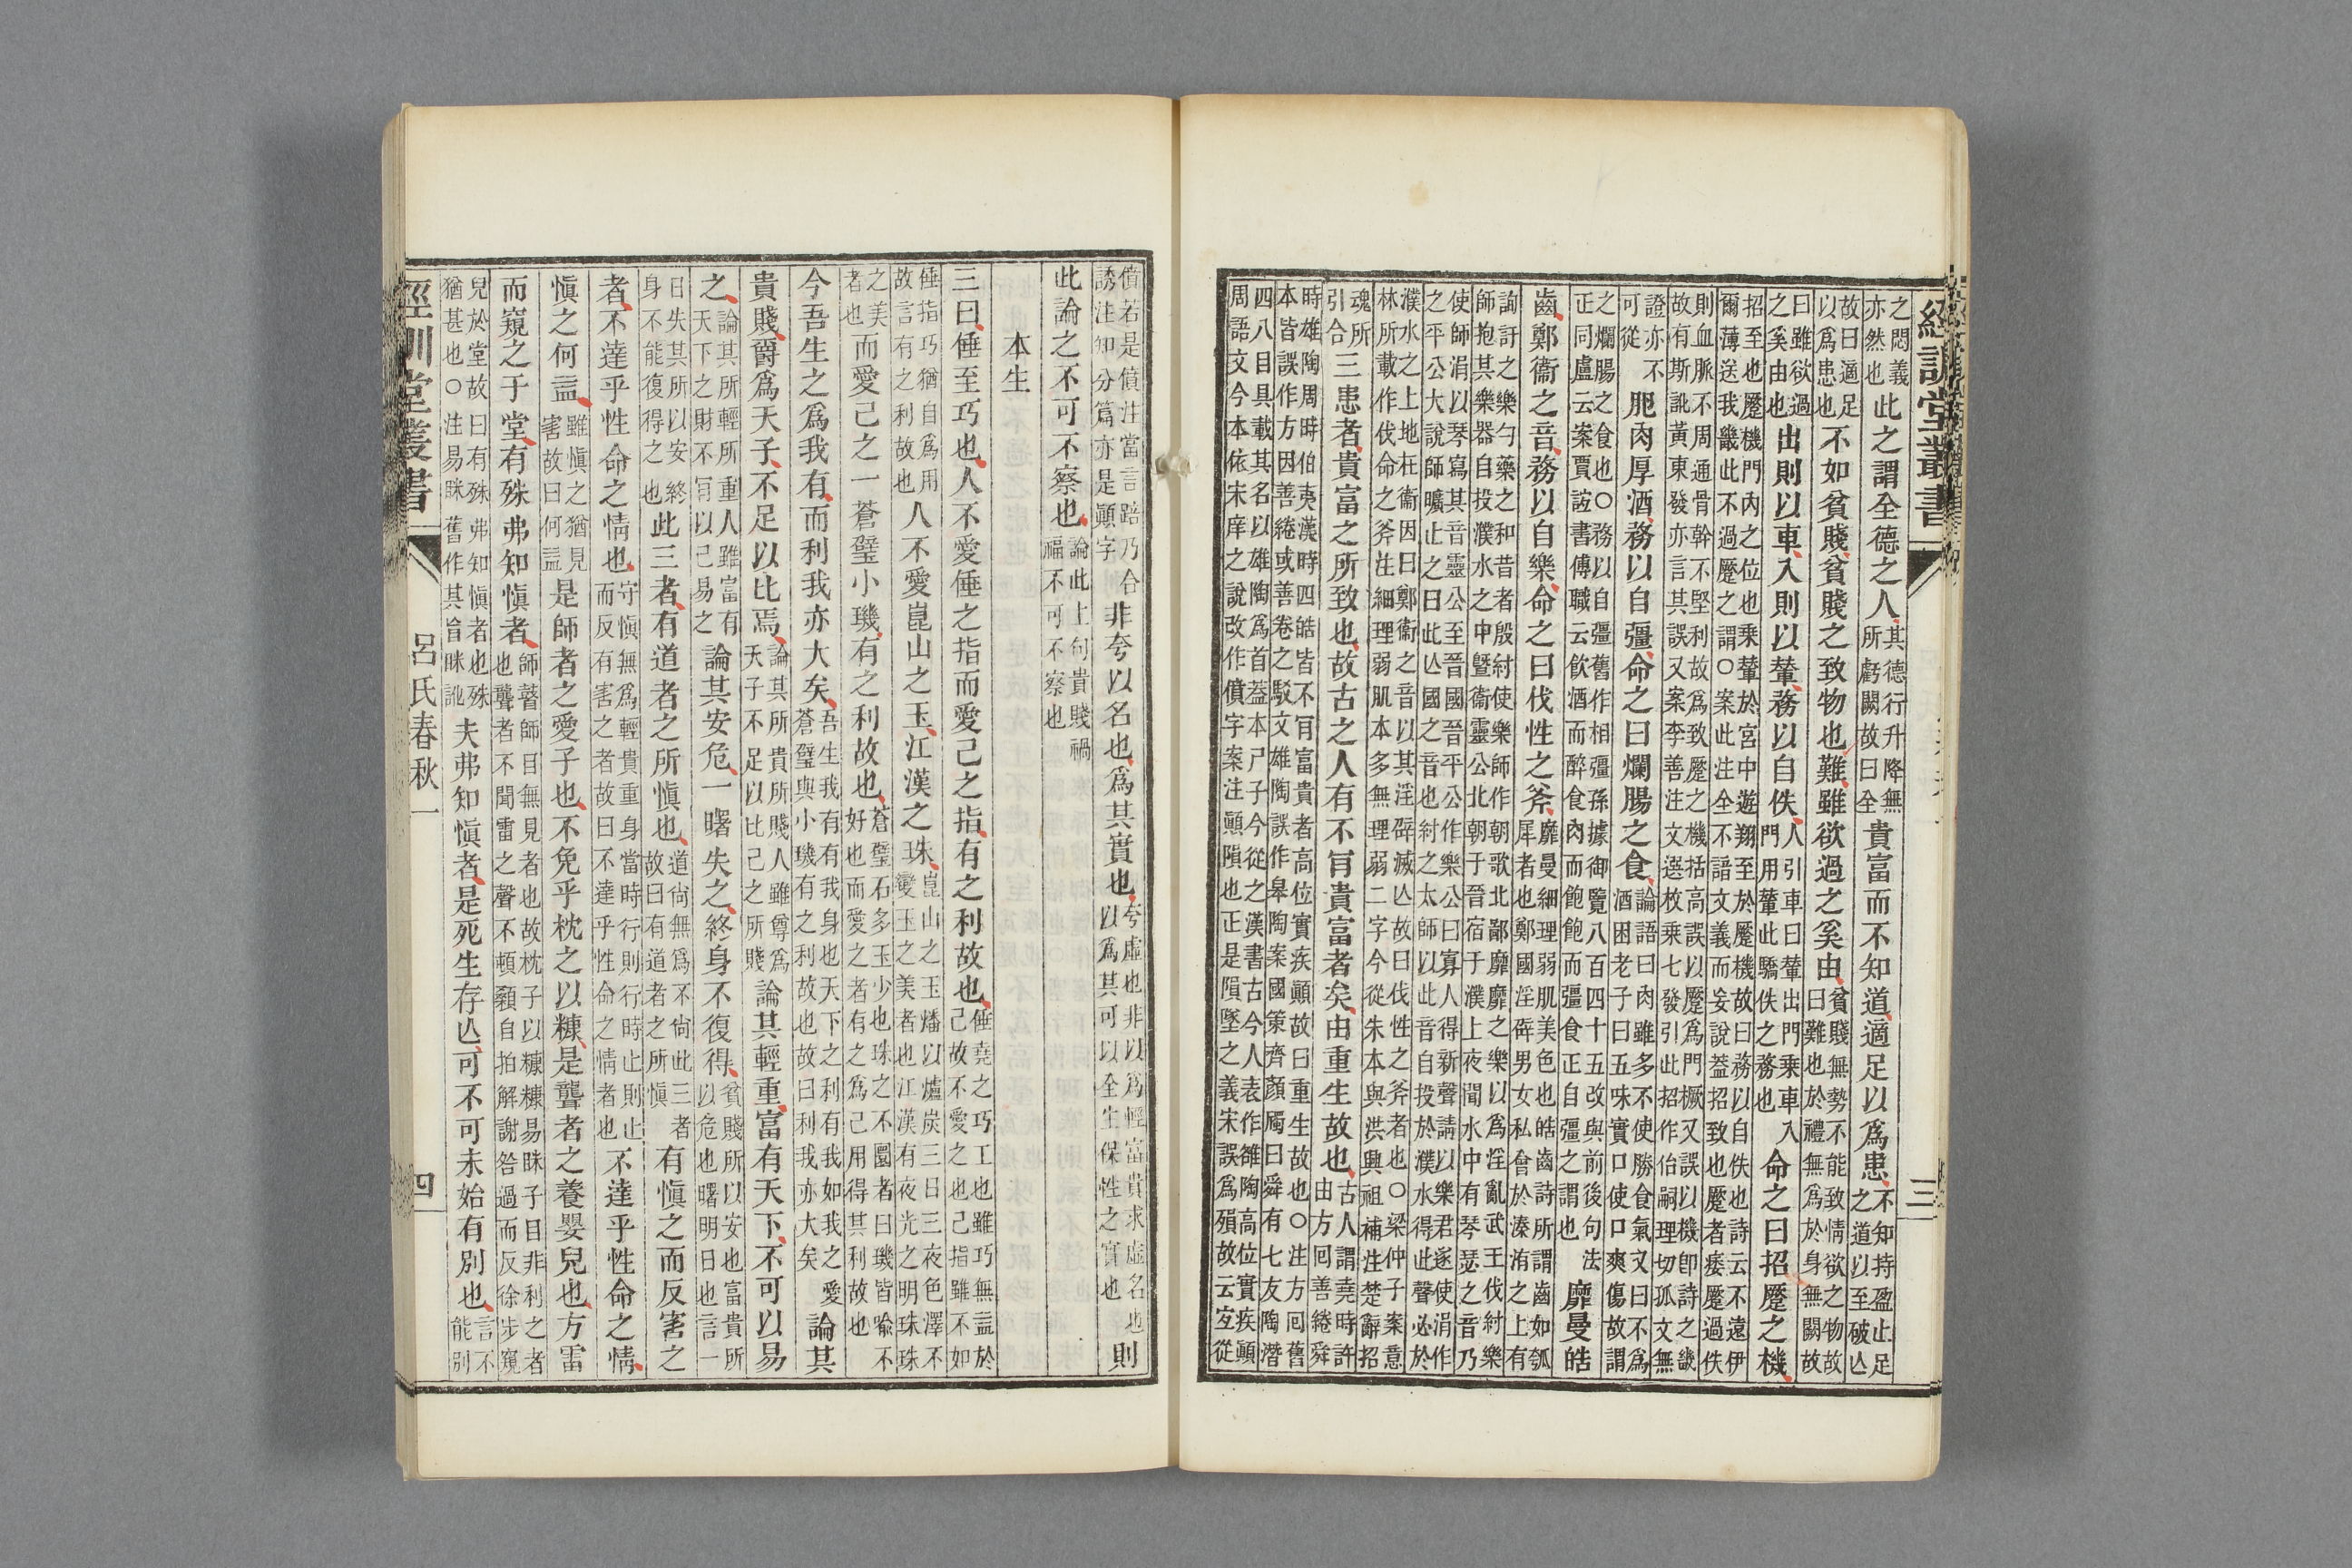 經訓堂叢書 三
之悶義亦然也此之謂全德之人其德行升降無所虧闕故曰全貴富而不知道適足以爲患不知持盈止足之道以至破亾
故曰適足以爲患也不如貧賤貧賤之致物也難雖欲過之奚由貧賤無勢不能致情欲之物故曰難也於禮無爲於身無闕故
曰雖欲過之奚由也出則以車入則以輦務以自佚人引車曰輦出門乘車入門用輦此驕佚之務也命之曰招蹷之機
招至也蹷機門內之位也乘輦於宮中遊翔至於蹷機故曰務以自佚也詩云不遠伊
爾薄送我畿此不過蹷之謂○案此注全不語文義而妄說葢招致也蹷者痿蹷過佚
則血脈不周通骨幹不堅利故爲致蹷之機括高誤以蹷爲門橛又誤以機卽詩之畿
故有斯訛黃東發亦言其誤又案李善注文選枚乘七發引此招作佁嗣理切孤文無
證亦不可從肥肉厚酒務以自彊命之曰爛腸之食論語曰肉雖多不使勝食氣又曰不爲酒困老子曰五味實口使口爽傷故謂
之爛腸之食也○務以自彊舊作相彊孫據御覽八百四十五改與前後句法正同盧云案賈誼書傅職云飮酒而醉食肉而飽飽而彊食正自彊之謂也靡曼皓
齒鄭衞之音務以自樂命之曰伐性之斧靡曼細理弱肌美色也皓齒詩所謂齒如瓠犀者也鄭國淫辟男女私會於溱洧之上有
詢訏之樂勺藥之和昔者殷紂使樂師作朝歌北鄙靡靡之樂以爲淫亂武王伐紂樂
師抱其樂器自投濮水之中曁衞靈公北朝于晉宿于濮上夜聞水中有琴瑟之音乃
使師涓以琴寫其音靈公至晉國晉平公作樂公曰寡人得新聲請以樂君遂使涓作
之平公大說師曠止之曰此亾國之音也紂之太師以此音自投於濮水得此聲必於
濮水之上地在衞因曰鄭衞之音以其淫辟滅亾故曰伐性之斧者也○梁仲子案意
林所載作伐命之斧注細理弱肌本多無理弱二字今從朱本與洪興祖補注楚辭招
魂所引合三患者貴富之所致也故古之人有不肎貴富者矣由重生故也古人謂堯時許由方回善綣舜
時雄陶周時伯夷漢時四皓皆不肎富貴者高位實疾顚故曰重生故也○注方回舊
本皆誤作方因善綣或善卷之駁文雄陶誤作皋陶案國策齊顏斶曰舜有七友陶潛
四八目具載其名以雄陶爲首葢本尸子今從之漢書古今人表作雒陶高位實疾顚
周語文今本依宋庠之說改作僨字案注顚隕也正是隕墜之義宋誤爲殞故云宐從
僨若是僨注當言踣乃合誘注知分篇亦是顚字非夸以名也爲其實也夸虛也非以爲輕富貴求虛名也以爲其可以全生保性之實也則
此論之不可不察也論此上句貴賤禍福不可不察也
本生
三曰倕至巧也人不愛倕之指而愛己之指有之利故也倕堯之巧工也雖巧無益於己故不愛之也己指雖不如
倕指巧猶自爲用故言有之利故也人不愛崑山之玉江漢之珠崑山之玉燔以爐炭三日三夜色澤不變玉之美者也江漢有夜光之明珠珠
之美者也而愛己之一蒼璧小璣有之利故也蒼璧石多玉少也珠之不圜者曰璣皆喩不好也而愛之者有之爲己用得其利故也
今吾生之爲我有而利我亦大矣吾生我有有我身也天下之利有我如我之愛蒼璧與小璣有之利故也故曰利我亦大矣論其
貴賤爵爲天子不足以比焉論其所貴所賤人雖尊爲天子不足以比己之所賤論其輕重富有天下不可以易
之論其所輕所重人雖富有天下之財不肎以己易之論其安危一曙失之終身不復得貧賤所以安也富貴所以危也曙明日也言一
日失其所以安終身不能復得之也此三者有道者之所愼也道尙無爲不尙此三者故曰有道者之所愼有愼之而反害之
者不達乎性命之情也守愼無爲輕貴重身當時行則行時止則止而反有害之者故曰不達乎性命之情者也不達乎性命之情
愼之何益雖愼之猶見害故曰何益是師者之愛子也不免乎枕之以糠是聾者之養嬰兒也方雷
而窺之于堂有殊弗知愼者師瞽師目無見者也故枕子以糠糠易眯子目非利之者也聾者不聞雷之聲不頓顙自拍解謝咎過而反徐步窺
兒於堂故曰有殊弗知愼者也殊猶甚也○注易眯舊作其旨眯訛夫弗知愼者是死生存亾可不可未始有別也言不能別
經訓堂叢書 呂氏春秋一 四